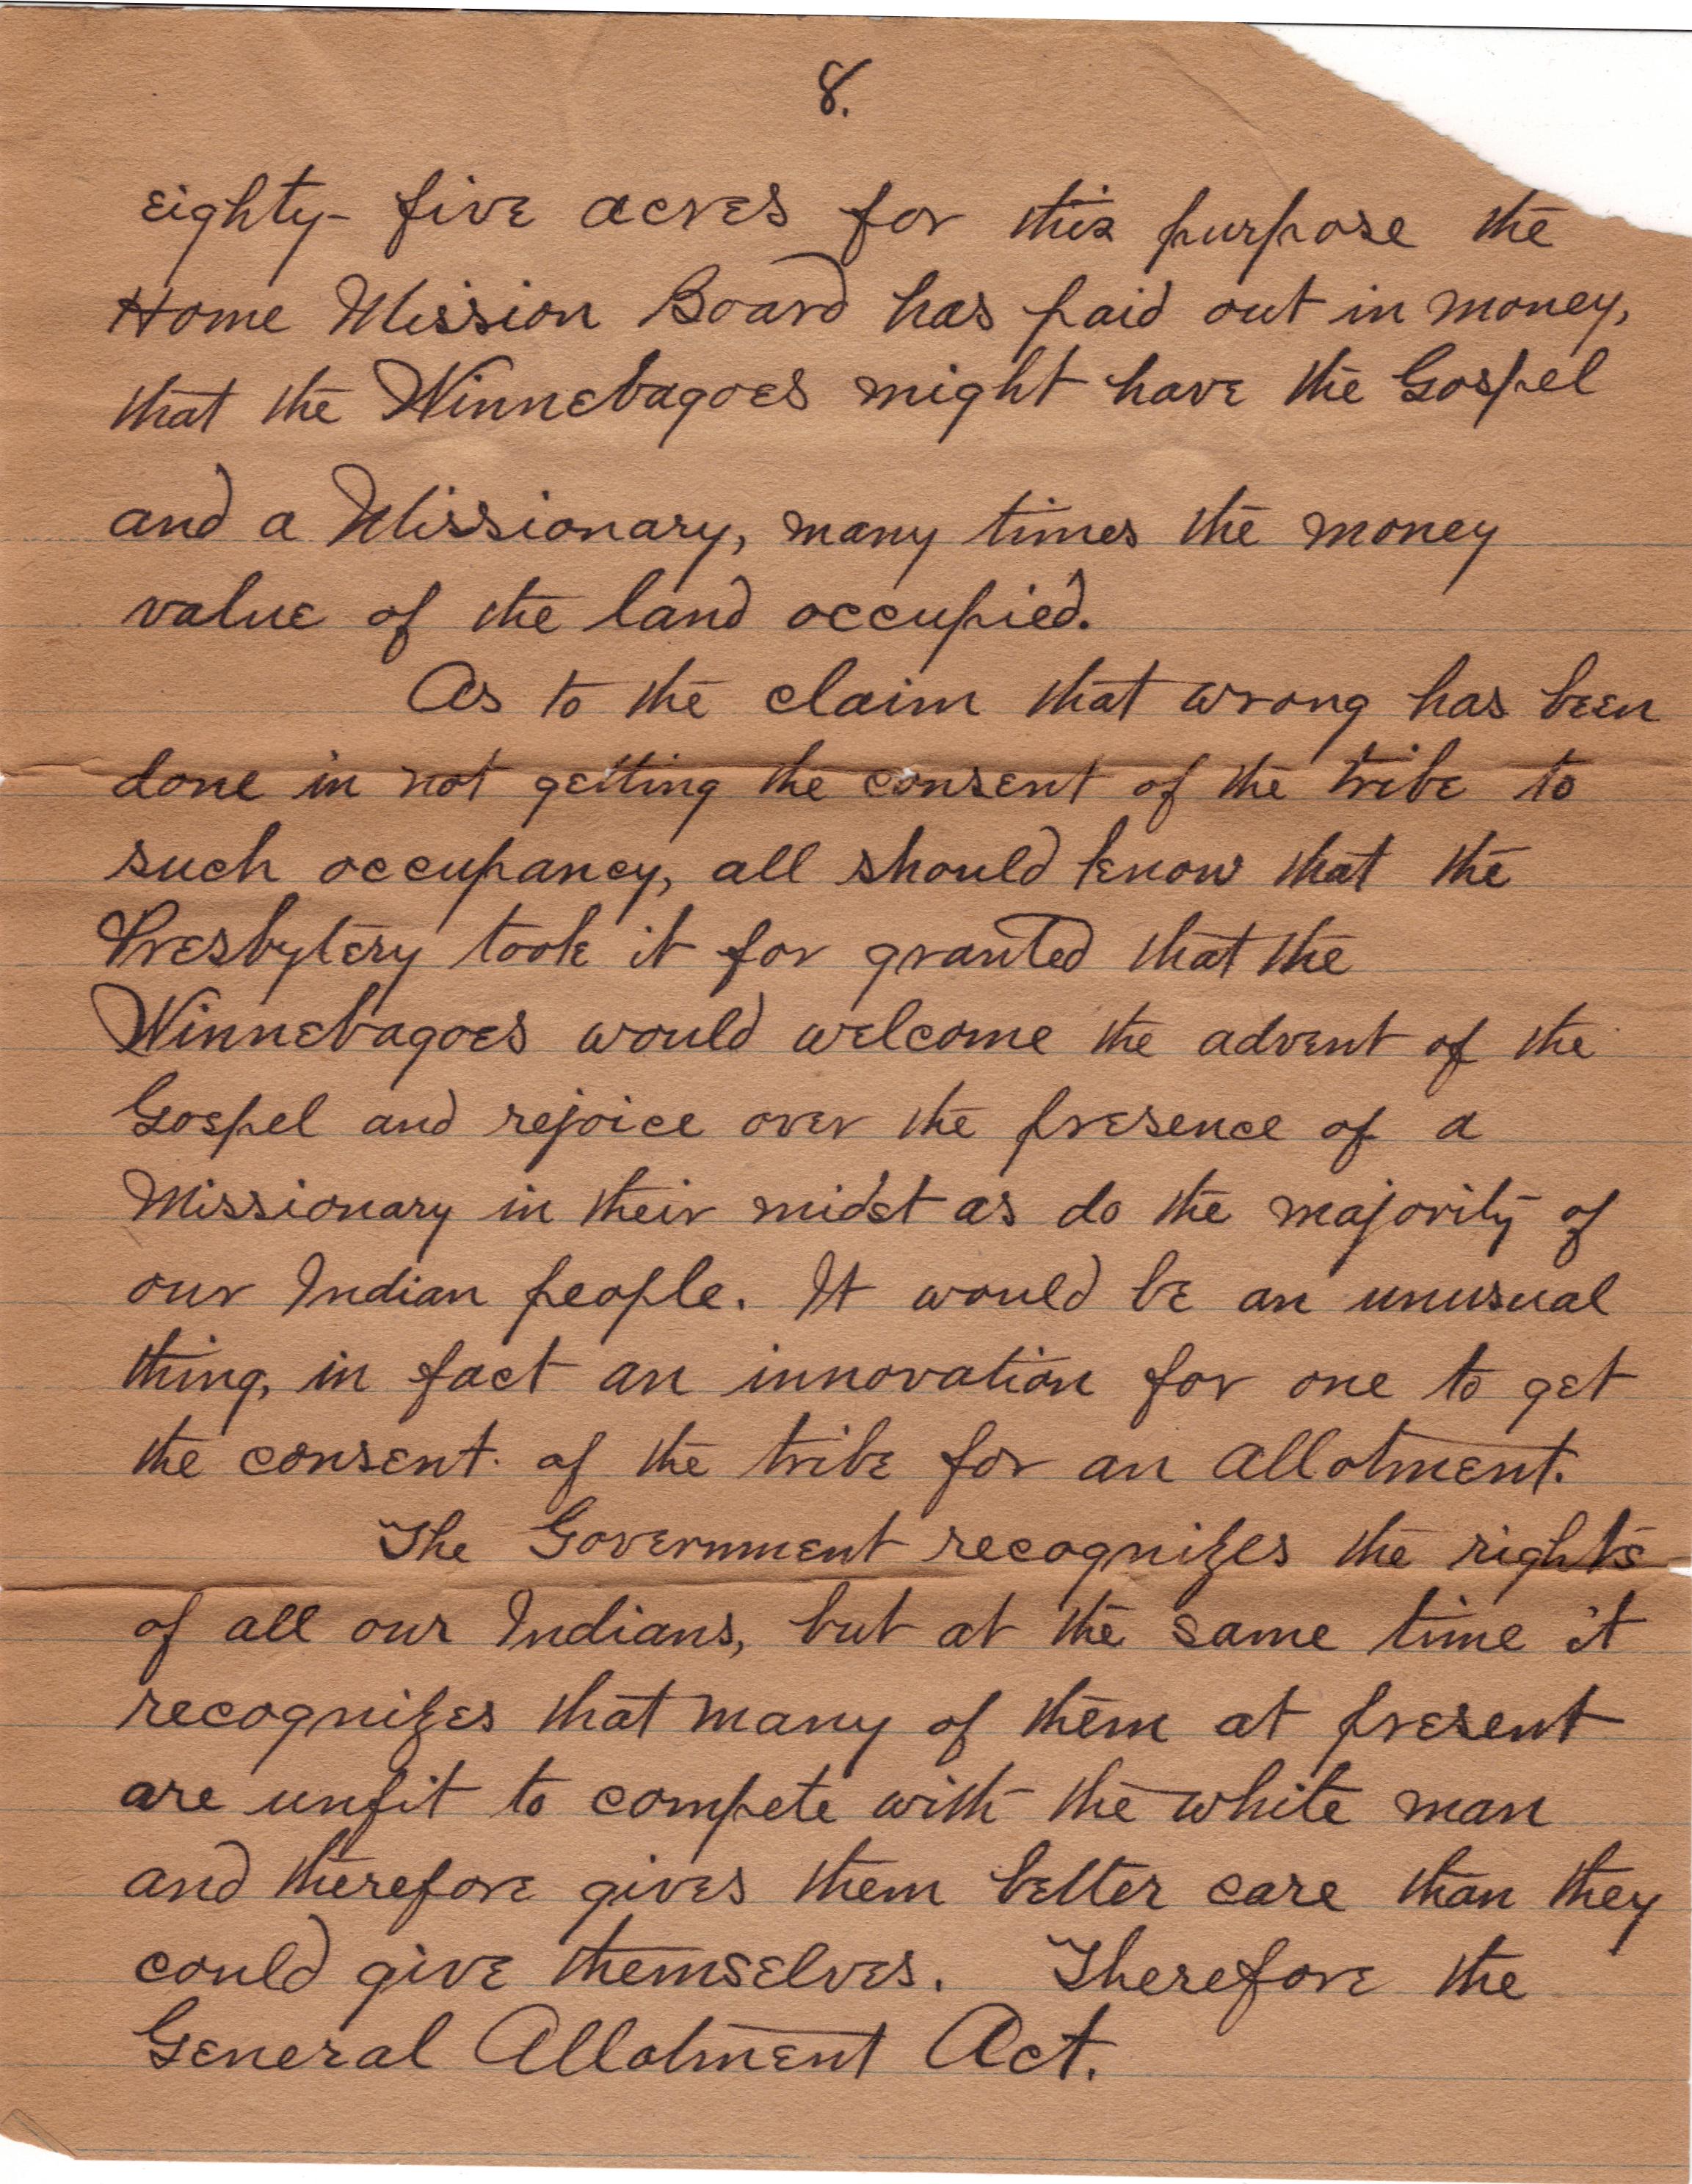 8.
eighty-five acres for this purpose the
Home Mission Board has paid out in money,
that the Winnebagoes might have the Gospel
and a Missionary, many times the money
value of the land occupied.
As to the claim that wrong has been
done in not getting the consent of the tribe to
such occupancy, all should know that the
Presbytery took it for granted that the
Winnebagoes would welcome the advent of the
Gospel and rejoice over the presence of a
Missionary in their midst as do the majority of
our Indian people. It would be an unusual
thing, in fact an innovation for one to get
the consent of the tribe for an allotment.
The Government recognizes the rights
of all our Indians, but at the same time it
recognizes that many of them at present
are unfit to compete with the white man
and therefore gives them better care than they
could give themselves. Therefore the
General Allotment Act.